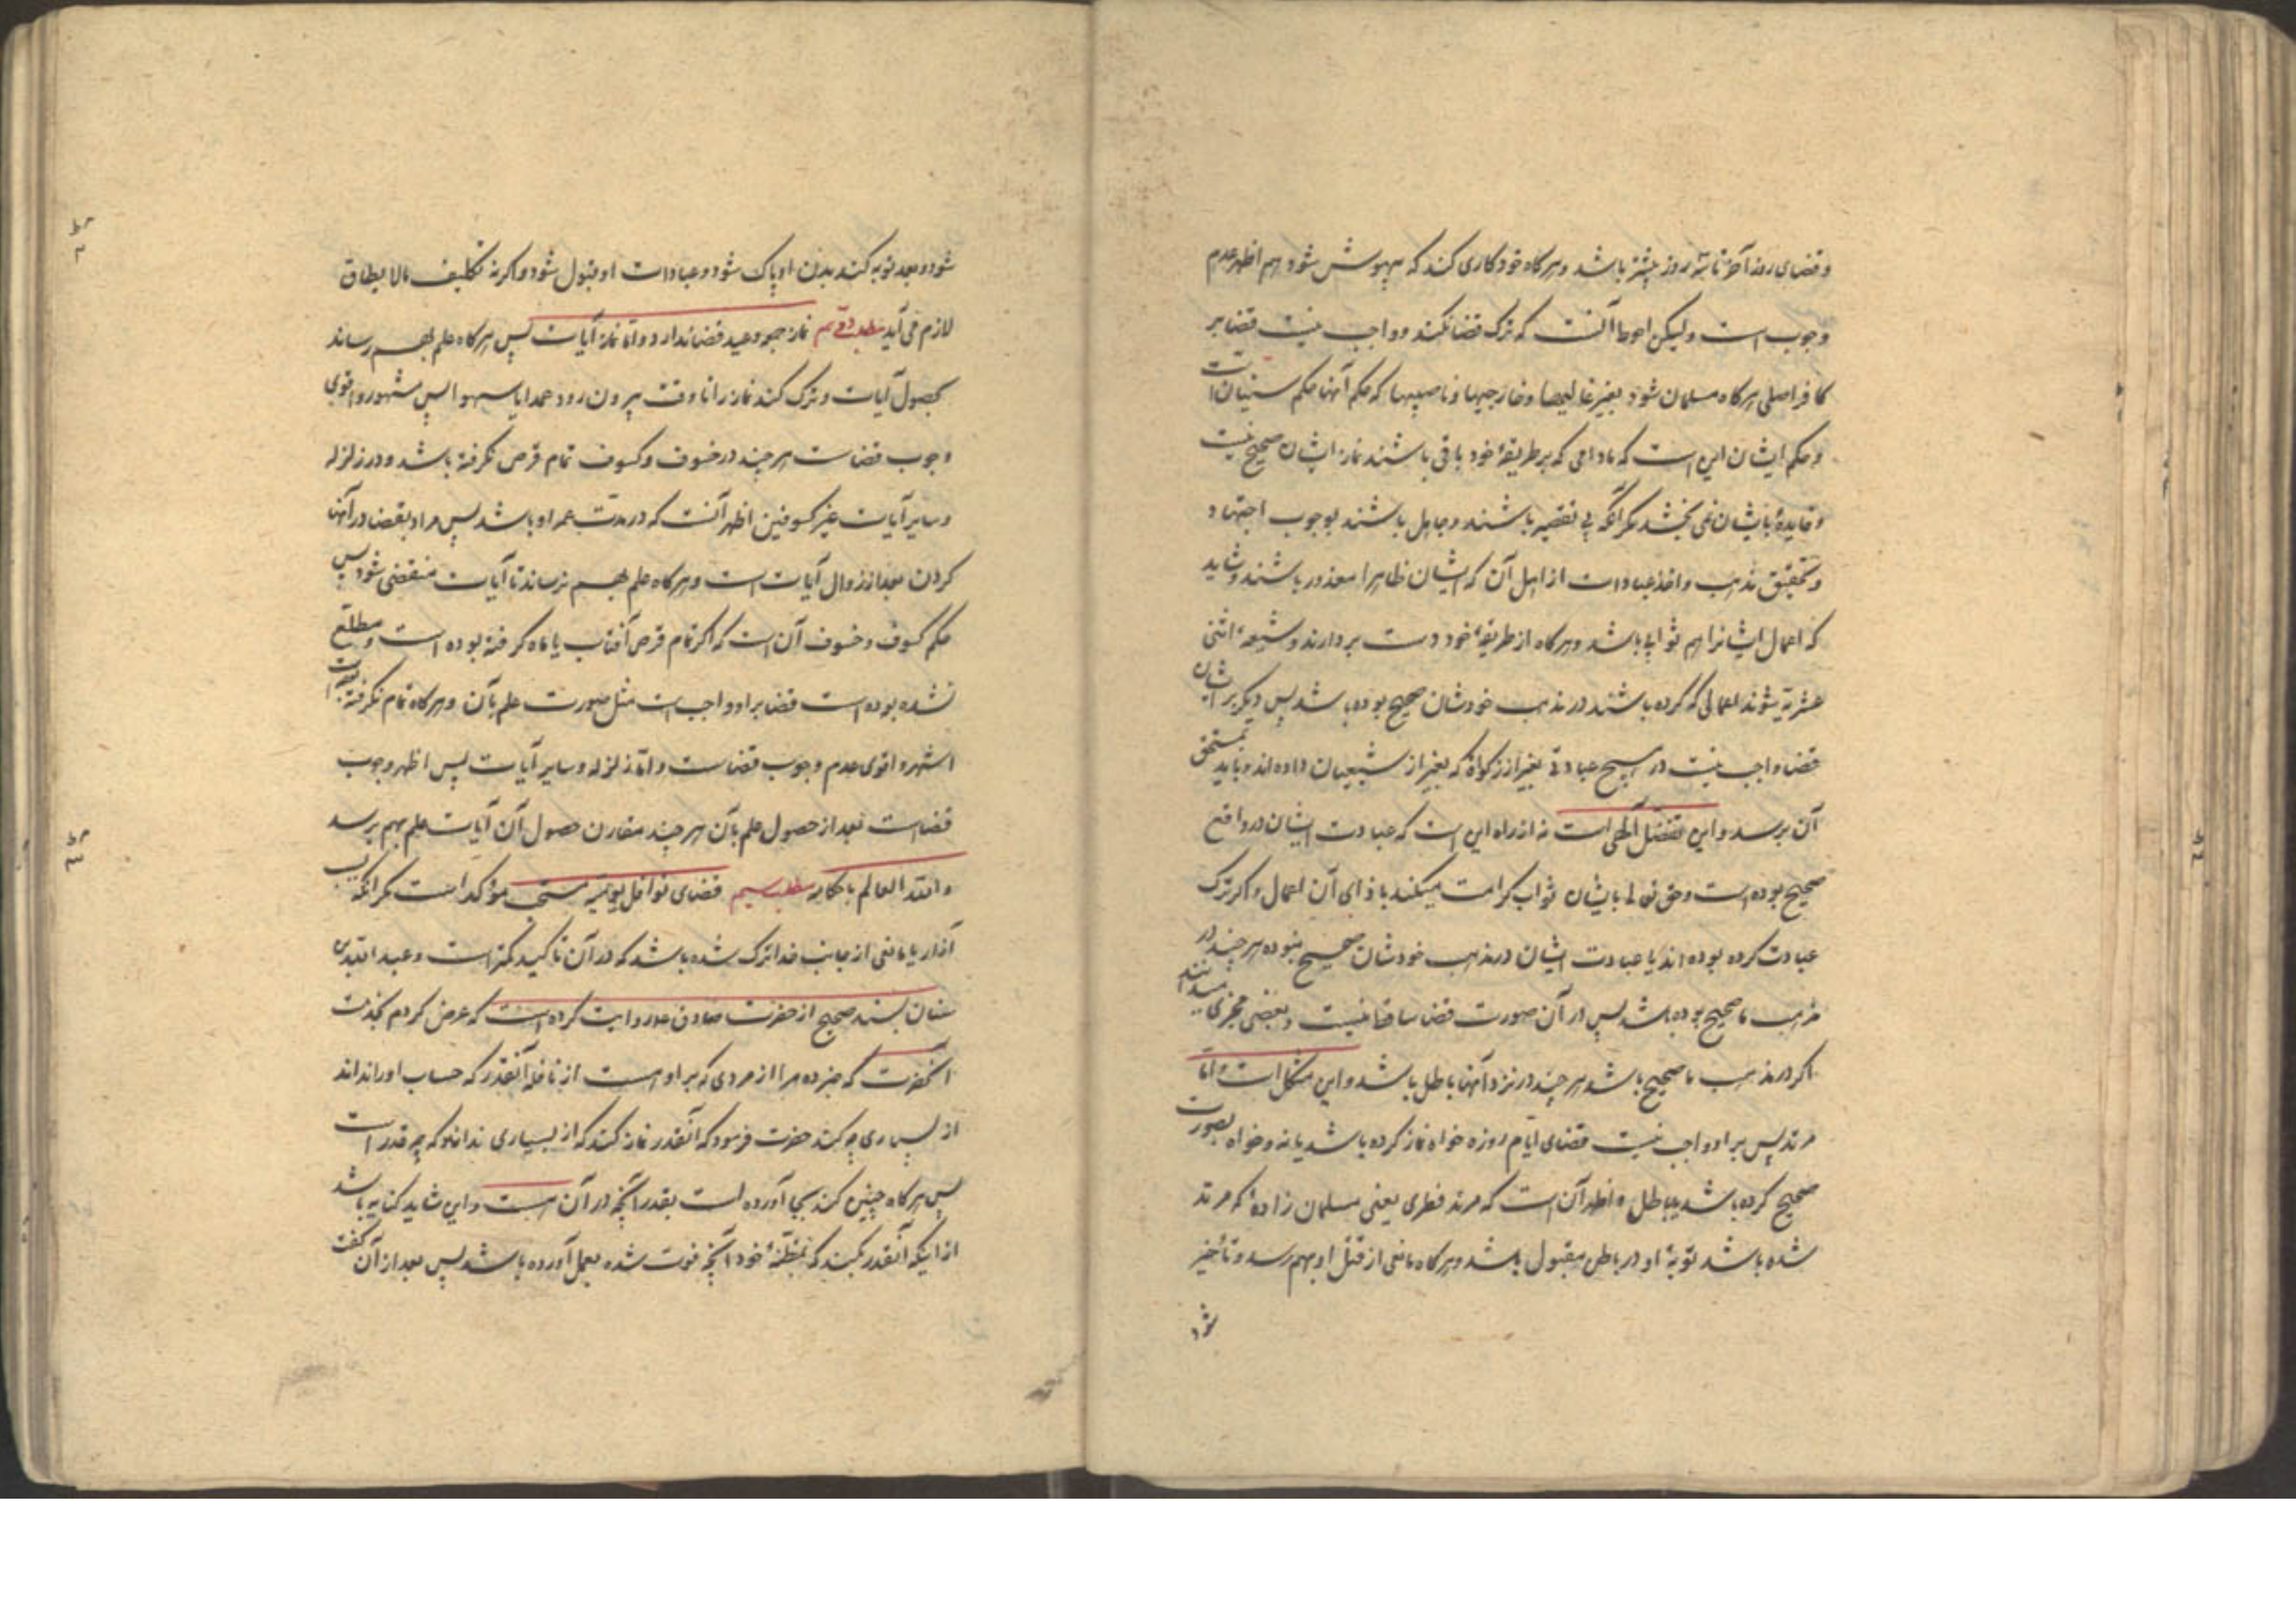 و قضای روز آخر تا سه روز بیشتر باشد و هرگاه خود کاری کند که بیهوش شود هم اظهر عدم
وجوب است ولیکن احوط آنست که ترک قضا نکند و واجب نیست قضا بر
کافر اصلی هرگاه مسلمان شود بغیر غالیها و خارجیها و ناصبیها که حکم آنها حکم سنیان است
و حکم ایشان این است که مادامی که بر طریقهٔ خود باقی باشند نماز ایشان صحیح نیست
و فایدهٔ بایشان نمی بخشد مگر آنکه بی تقصیر باشند و جاهل باشند بوجوب اجتهاد
و تحقیق مذهب و اخذ عبادات از اهل آن که ایشان ظاهرا معذور باشند و شاید
که اعمال ایشانرا هم ثوابی باشد و هرگاه از طریقهٔ خود دست بردارند و شیعهٔ اثنی
عشریه شوند اعمالی که کرده باشند در مذهب خودشان صحیح بوده باشد پس دیگر بر ایشان
قضا واجب نیست در هیچ عبادتی بغیر از زکوة که بغیر از شیعیان داده اند و باید بمستحق
آن برسد و این تفضل الهی است نه از راه این است که عبادت ایشان در واقع
صحیح بوده است و حق تعالی بایشان ثواب کرامت میکند بازای آن اعمال و اگر ترک
عبادت کرده بوده اند یا عبادت ایشان در مذهب خودشان صحیح نبوده هر چند در
مذهب ما صحیح بوده باشد پس در آن صورت قضا ساقط نیست و بعضی مجزی میدانند
اگر در مذهب ما صحیح باشد هر چند در نزد آنها باطل باشد و این مشکل است و اما
مرتد پس بر او واجب نیست قضای ایام روزه خواه نماز کرده باشد یا نه و خواه بصورت
صحیح کرده باشد یا باطل و اظهر آن است که مرتد فطری یعنی مسلمان زادهٔ که مرتد
شده باشد توبهٔ او در باطن مقبول باشد و هرگاه مانعی از قتل او بهم رسد و تأخیر
شود
شود و بعد توبه کند بدن او پاک شود و عبادات او قبول شود و اگر نه تکلیف مالا یطاق
لازم می آید مطلب دویم نماز جمعه و عید قضا ندارد و اما نماز آیات پس هرگاه علم بهم رساند
بحصول آیات و ترک کند نماز را تا وقت بیرون رود عمدا یا سهوا پس مشهور و اقوی
وجوب قضاست هر چند در خسوف و کسوف تمام قرص نگرفته باشد و در زلزله
و سایر آیات غیر کسوفین اظهر آنست که در مدت عمر ادا باشد پس مراد بقضا در آنها
کردن بعد از زوال آیات است و هرگاه علم بهم نرساند تا آیات منقضی شود پس
حکم کسوف و خسوف آن است که اگر تمام قرص آفتاب یا ماه گرفته بوده است و مطلع
نشده بوده است قضا بر او واجب است مثل صورت علم بآن و هرگاه تمام نگرفته بوده است
اشهر و اقوی عدم وجوب قضاست و اما زلزله و سایر آیات پس اظهر وجوب
قضاست بعد از حصول علم بآن هر چند مقارن حصول آن آیات علم بهم نرسد
و الله العالم باحکامه مطلب سیم قضای نوافل یومیه مستحب مؤکد است مگر آنکه بسبب
آزار یا مانعی از جانب خدا ترک شده باشد که در آن تأکید کمتر است و عبد الله بن
سنان بسند صحیح از حضرت صادق ع روایت کرده است که عرض کردم بخدمت
آنحضرت که خبر ده مرا از مردی که بر او هست از نافله آنقدر که حساب او را نداند
از بسیاری چه کند حضرت فرمود که آنقدر نماز کند که از بسیاری نداند که چه قدر است
پس هرگاه چنین کند بجا آورده است بقدر آنچه در آن هست و این شاید کنایه باشد
از اینکه آنقدر بکند که بمظنهٔ خود آنچه فوت شده بعمل آورده باشد پس بعد از آن گفت